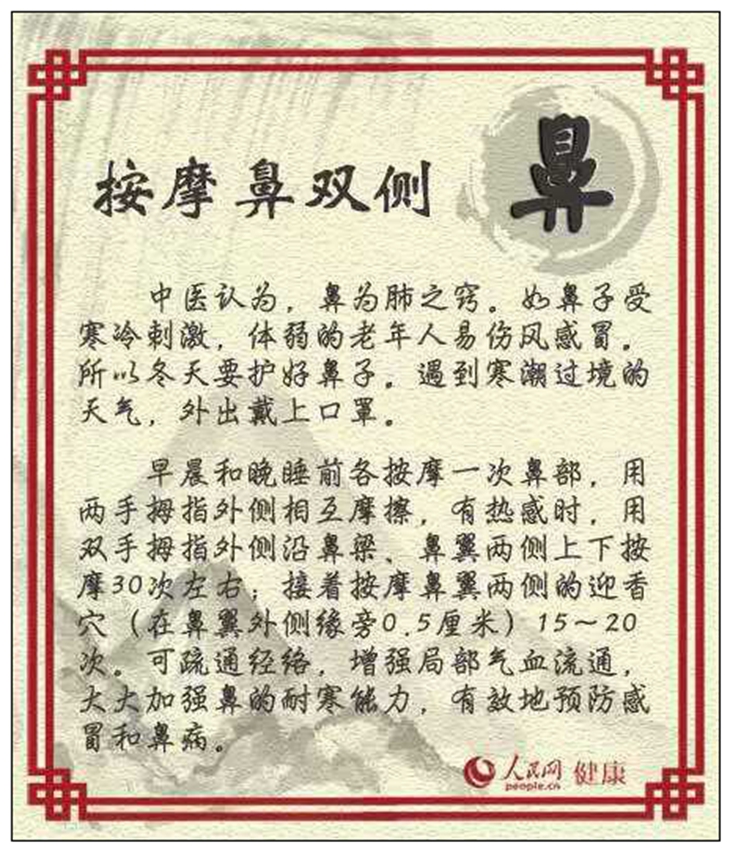 鼻
按摩鼻双侧
中医认为，鼻为肺之窍。如鼻子受
寒冷刺激，体弱的老年人易伤风感冒。
所以冬天要护好鼻子。遇到寒潮过境的
天气，外出戴上口罩。
早晨和晚睡前各按摩一次鼻部，用
两手拇指外侧相互摩擦，有热感时，用
双手拇指外侧沿鼻梁、鼻翼两侧上下按
摩30次左右；接着按摩鼻翼两侧的迎香
穴（在鼻翼外侧缘旁0.5厘米）15～20
次。可疏通经络，增强局部气血流通，
大大加强鼻的耐寒能力，有效地预防感
冒和鼻病。
人民网 健康
people.cn